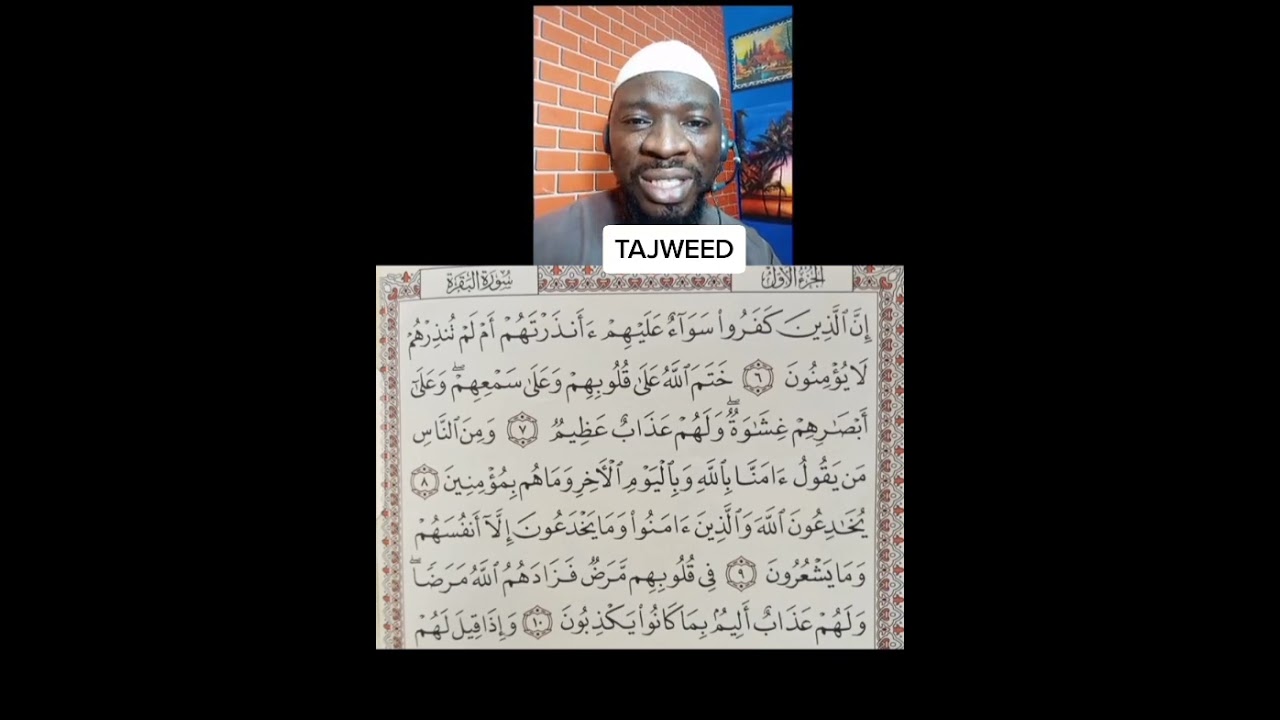 TAJWEED
سُورَةُ البَقَرَةِ
الجُزْءُ الأَوَّلُ
إِنَّ ٱلَّذِينَ كَفَرُوا۟ سَوَآءٌ عَلَيْهِمْ ءَأَنذَرْتَهُمْ أَمْ لَمْ تُنذِرْهُمْ
لَا يُؤْمِنُونَ ٦ خَتَمَ ٱللَّهُ عَلَىٰ قُلُوبِهِمْ وَعَلَىٰ سَمْعِهِمْ ۖ وَعَلَىٰٓ
أَبْصَـٰرِهِمْ غِشَـٰوَةٌ ۖ وَلَهُمْ عَذَابٌ عَظِيمٌ ٧ وَمِنَ ٱلنَّاسِ
مَن يَقُولُ ءَامَنَّا بِٱللَّهِ وَبِٱلْيَوْمِ ٱلْـَٔاخِرِ وَمَا هُم بِمُؤْمِنِينَ ٨
يُخَـٰدِعُونَ ٱللَّهَ وَٱلَّذِينَ ءَامَنُوا۟ وَمَا يَخْدَعُونَ إِلَّآ أَنفُسَهُمْ
وَمَا يَشْعُرُونَ ٩ فِى قُلُوبِهِم مَّرَضٌ فَزَادَهُمُ ٱللَّهُ مَرَضًا ۖ
وَلَهُمْ عَذَابٌ أَلِيمٌۢ بِمَا كَانُوا۟ يَكْذِبُونَ ١٠ وَإِذَا قِيلَ لَهُمْ